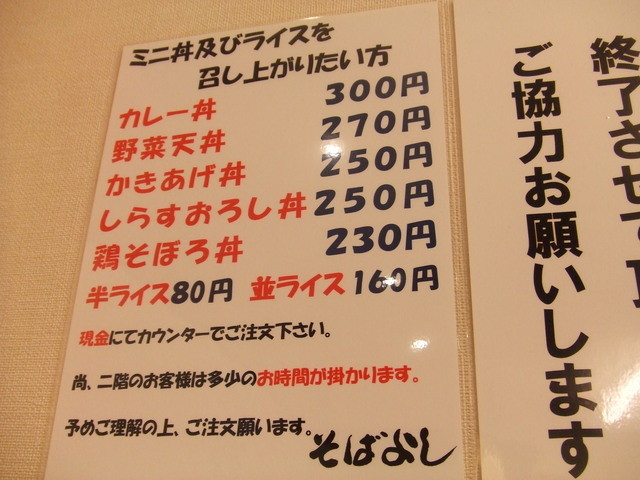 ミニ丼及びライスを
召し上がりたい方
カレー丼 300円
野菜天丼 270円
かきあげ丼 250円
しらすおろし丼 250円
鶏そぼろ丼 230円
半ライス80円 並ライス160円
現金にてカウンターでご注文下さい。
尚、二階のお客様は多少のお時間が掛かります。
予めご理解の上、ご注文願います。
そばよし
終了させて
ご協力お願いします